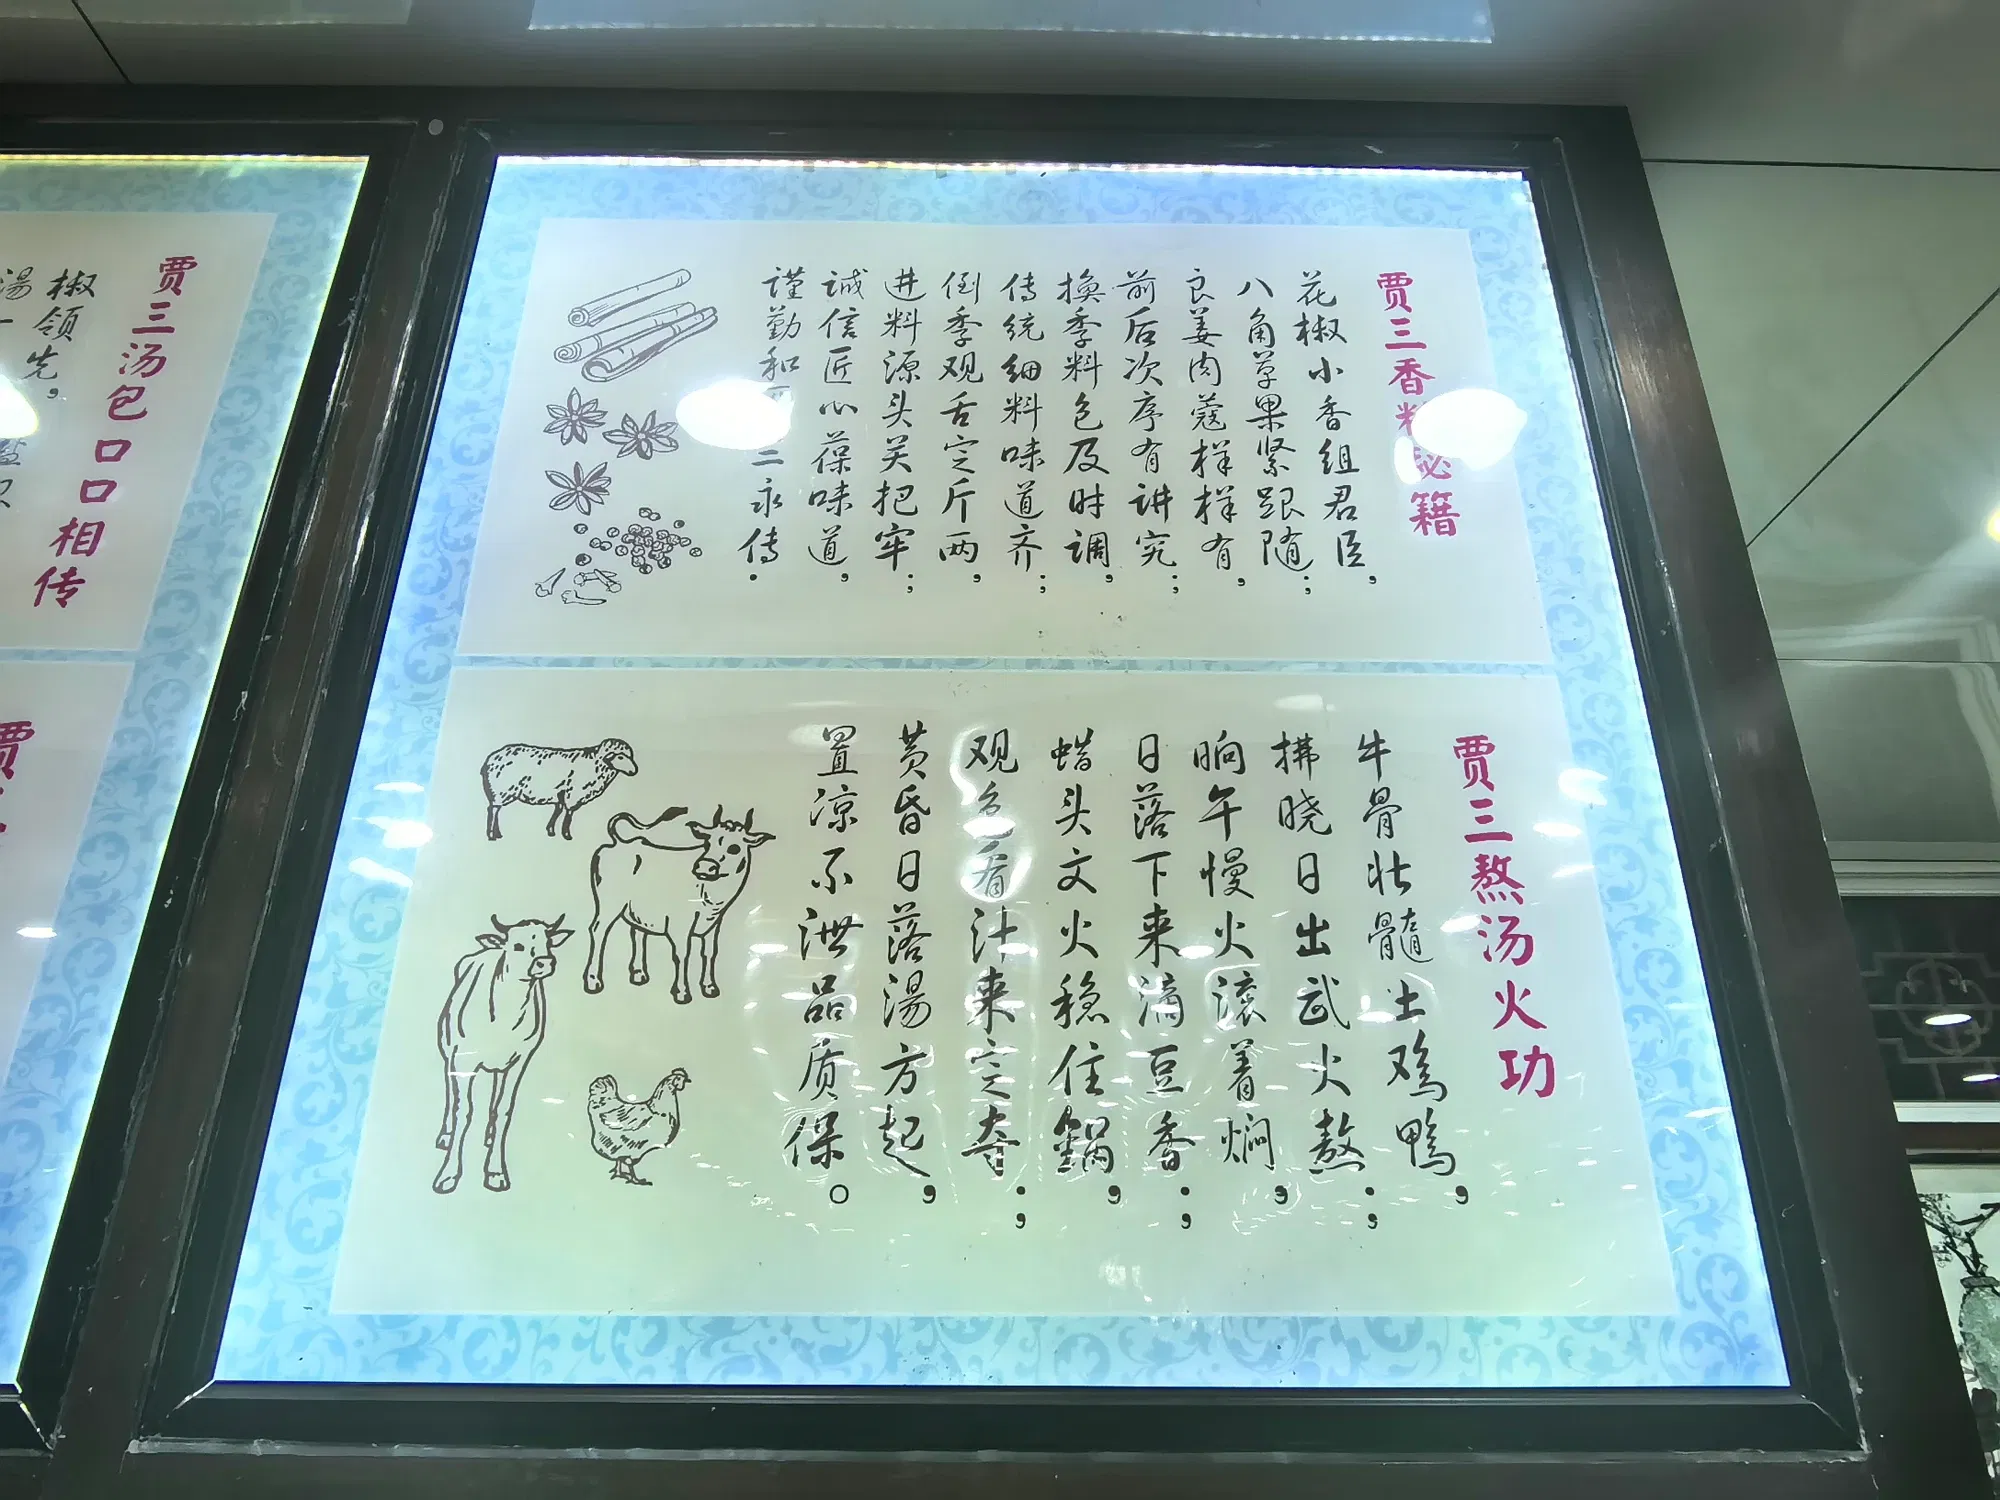 贾三香料秘籍
花椒小香组君臣，
八角草果紧跟随；
良姜肉蔻样样有，
前后次序有讲究；
换季料包及时调，
传统细料味道齐；
倒季观舌定斤两，
进料源头关把牢；
诚信匠心葆味道，
谨勤和 二永传.
贾三熬汤火功
牛骨壮髓土鸡鸭，
拂晓日出武火熬；
晌午慢火滚着焖，
日落下来滴豆香；
蜡头文火稳住鍋，
观色看汁来定夺；
黄昏日落湯方起，
置凉不泄品质保。
贾三汤包口口相传
椒领先，
湯一
贾三